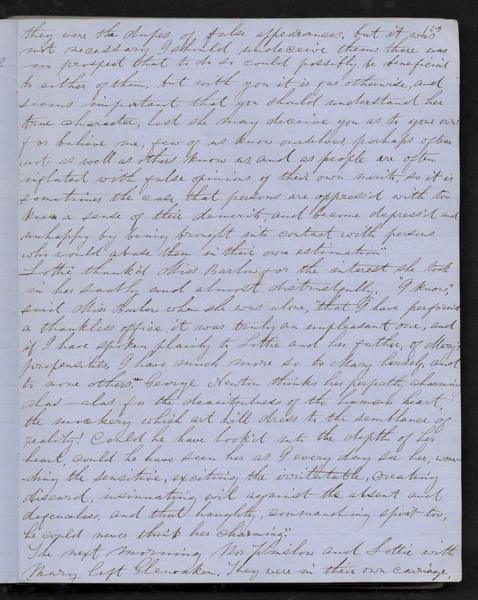 they were the dupes of false appearances, but it was
not necessary I should undeceive them: there was
no prospect that to do so could possibly be beneficial
to either of them, but with you it is otherwise, and
seems important that you should understand her
true character, lest she may deceive you as to your own
for believe me, few of us know ourselves, perhaps often
not as well as others know us, and as people are often
inflated with false opinions of their own merits, so it is
sometimes the case, that persons are oppress'd with too
keen a sense of their demerits, and become depress'd and
unhappy by being brought into contact with persons
who would abase them in their own estimation"
Lottie thank'd Miss Barlow for the interest she took
in her sadly and almost distrustfully, "I know,"
said Miss Barlow when she was alone, "that I have perform'd
a thankless office it was truly an unpleasant one, and
if I have spoken plainly to Lottie and her father, of Mary's
propensities, I have much more so to Mary herself, and
to some others." George Newton thinks her perfectly charming
alas - alas for the deceitfulness of the human heart,
the mockery which art will dress to the semblance of
reality! Could he have look'd into the depth of her
heart, could he have seen her as I every day see her, woun-
ding the sensitive, exciting the irritable, creating
discord, insinuating evil against the absent and
defenceless, and that haughty, commanding spirit too,
he could never think her charming".
The next morning Mr Winslow and Lottie with
Mary left Glenoaken. They were in their own carriage,